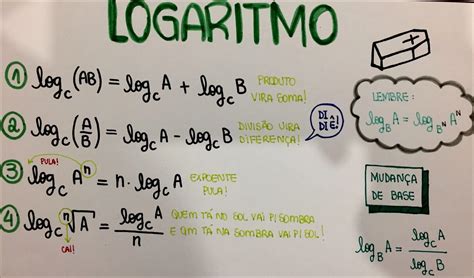 LOGARITMO
① log_C (AB) = log_C A + log_C B PRODUTO
VIRA SOMA!
② log_C (A/B) = log_C A - log_C B DIVISÃO VIRA
DIFERENÇA!
DI
DIÊ!
PULA!
③ log_C Aⁿ = n · log_C A EXPOENTE
PULA!
④ log_C ⁿ√A = log_C A / n QUEM TÁ NO SOL VAI P/ SOMBRA
E QM TÁ NA SOMBRA VAI P/ SOL!
CAI!
+
LEMBRE:
log_B A = log_{B^N} A^N
MUDANÇA
DE BASE
log_B A = log_C A / log_C B